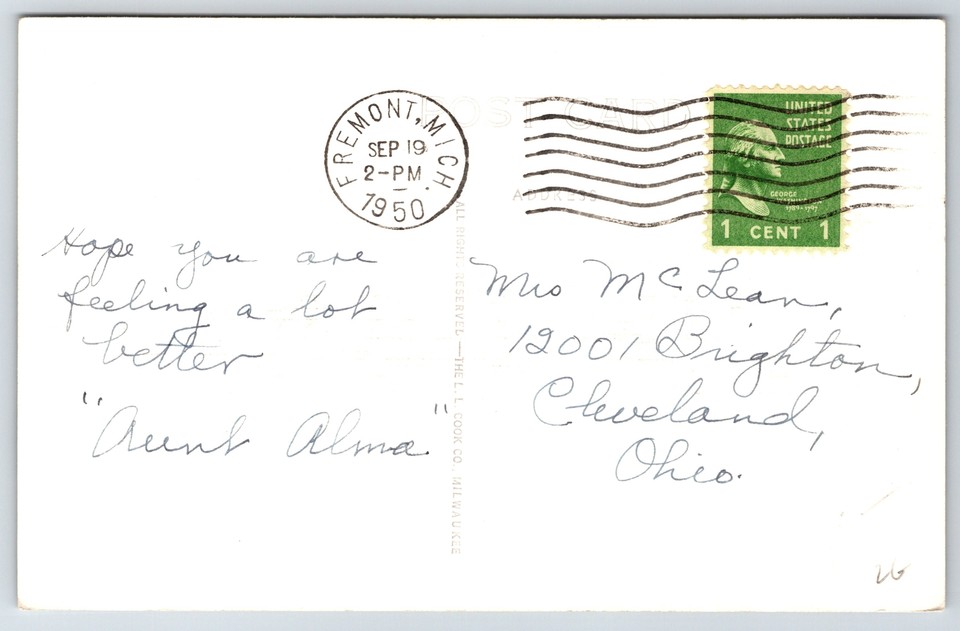 POST CARD
FREMONT, MICH
SEP 19
2-PM
1950
UNITED
STATES
POSTAGE
GEORGE
WASHINGTON
1789-1797
1 CENT 1
ADDRESS
Hope you are
feeling a lot
better
"Aunt Alma"
ALL RIGHTS RESERVED—THE L. L. COOK CO., MILWAUKEE
Mrs McLean,
12001 Brighton,
Cleveland,
Ohio.